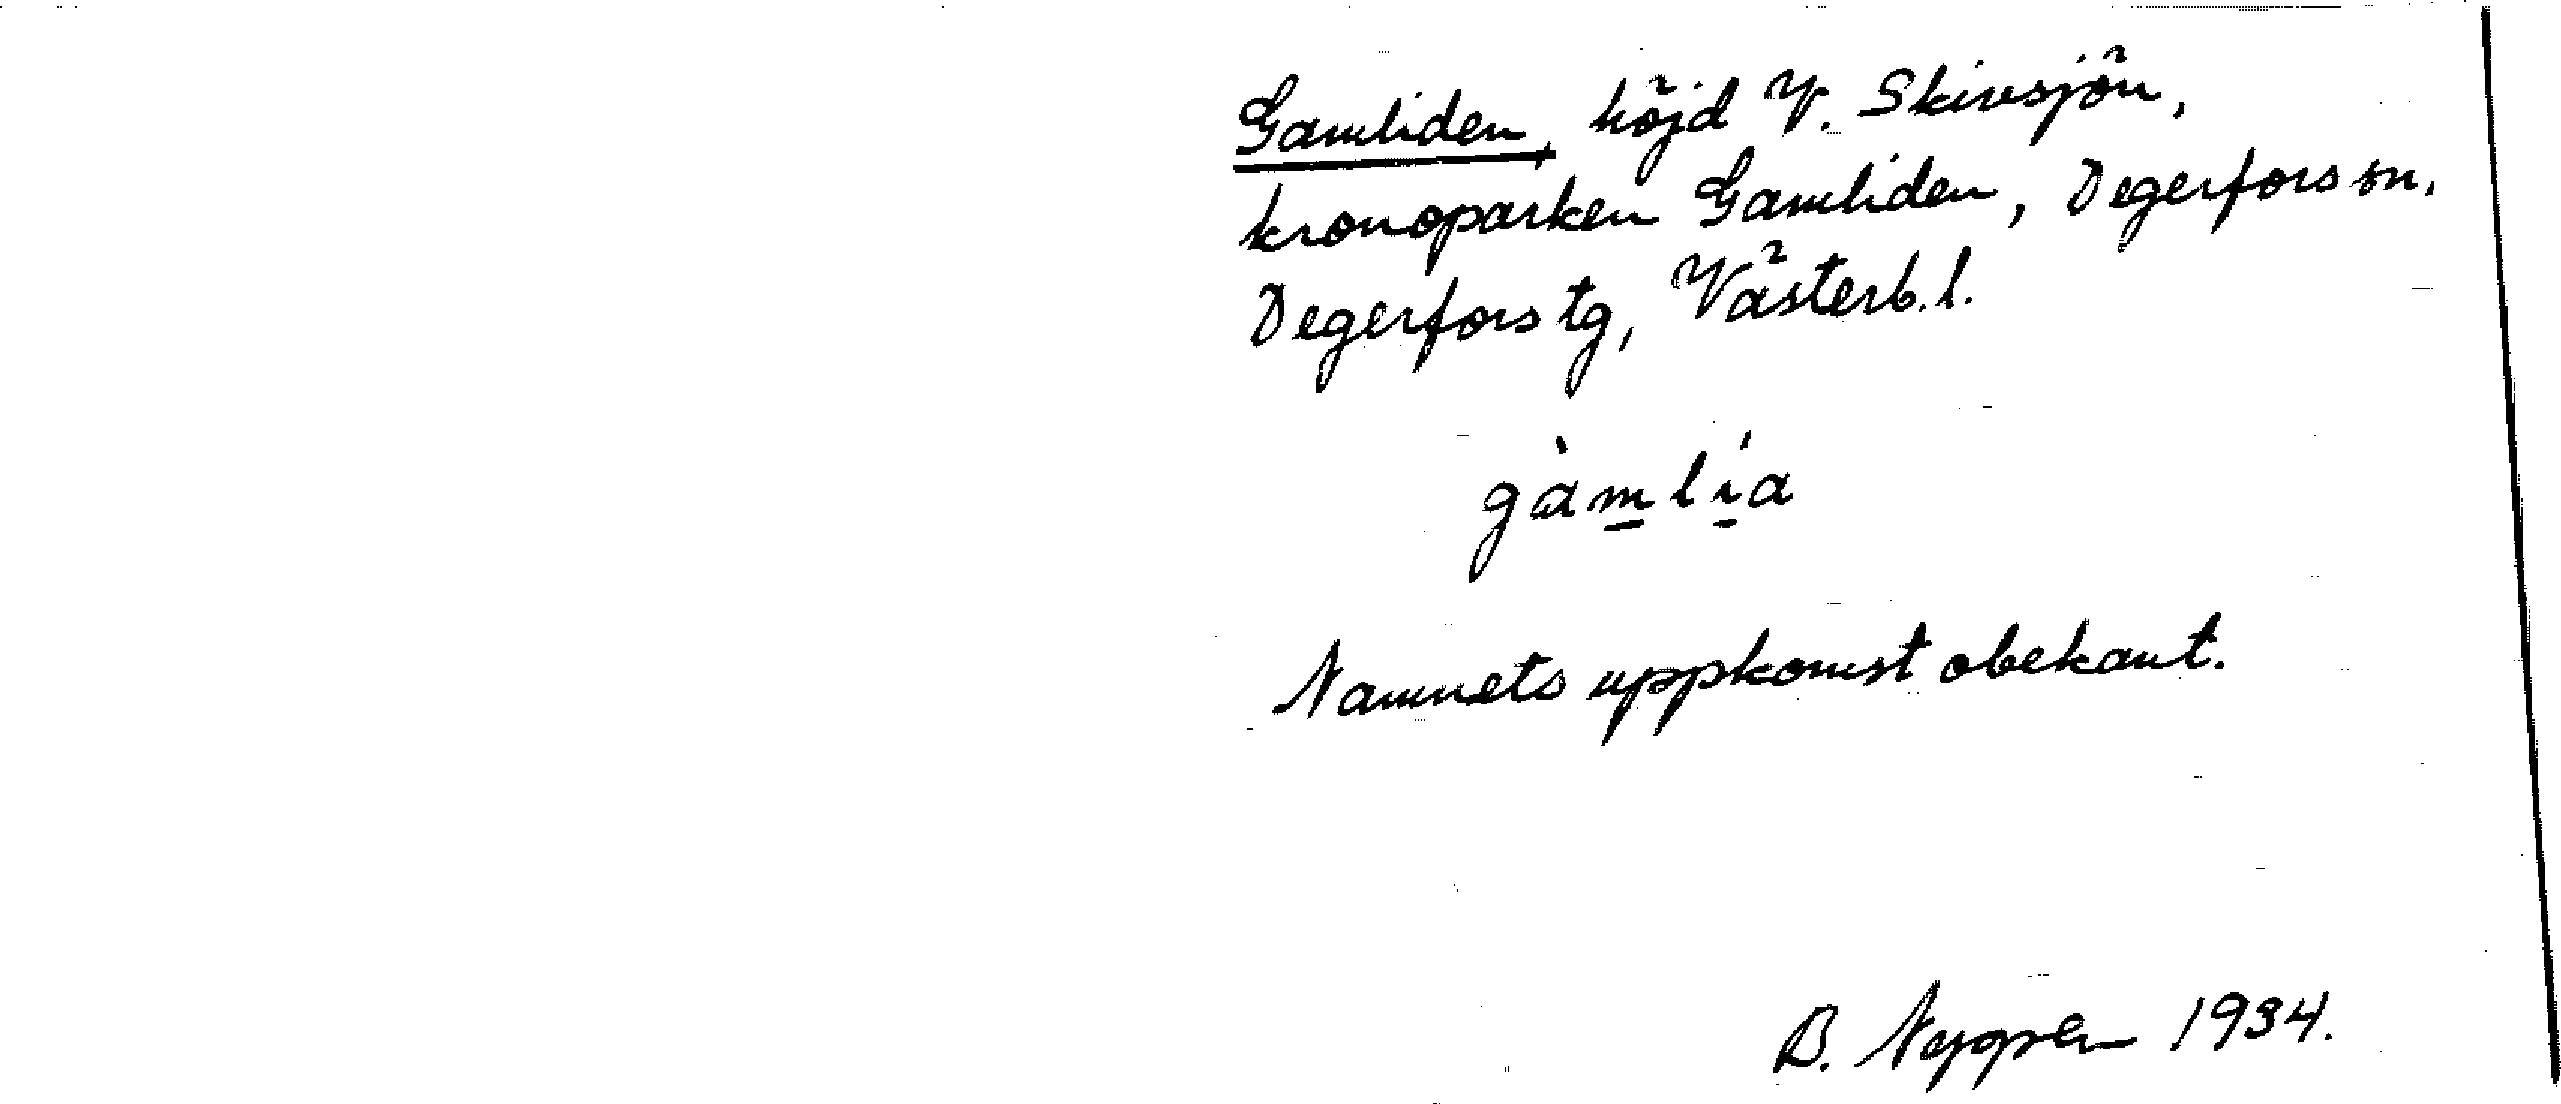 Gamliden, höjd V. Skivsjön,
kronoparken Gamliden, Degerfors sn,
Degerfors tg, Västerb. l.
gàmlía
Namnets uppkomst obekant.
B. Nygren 1934.